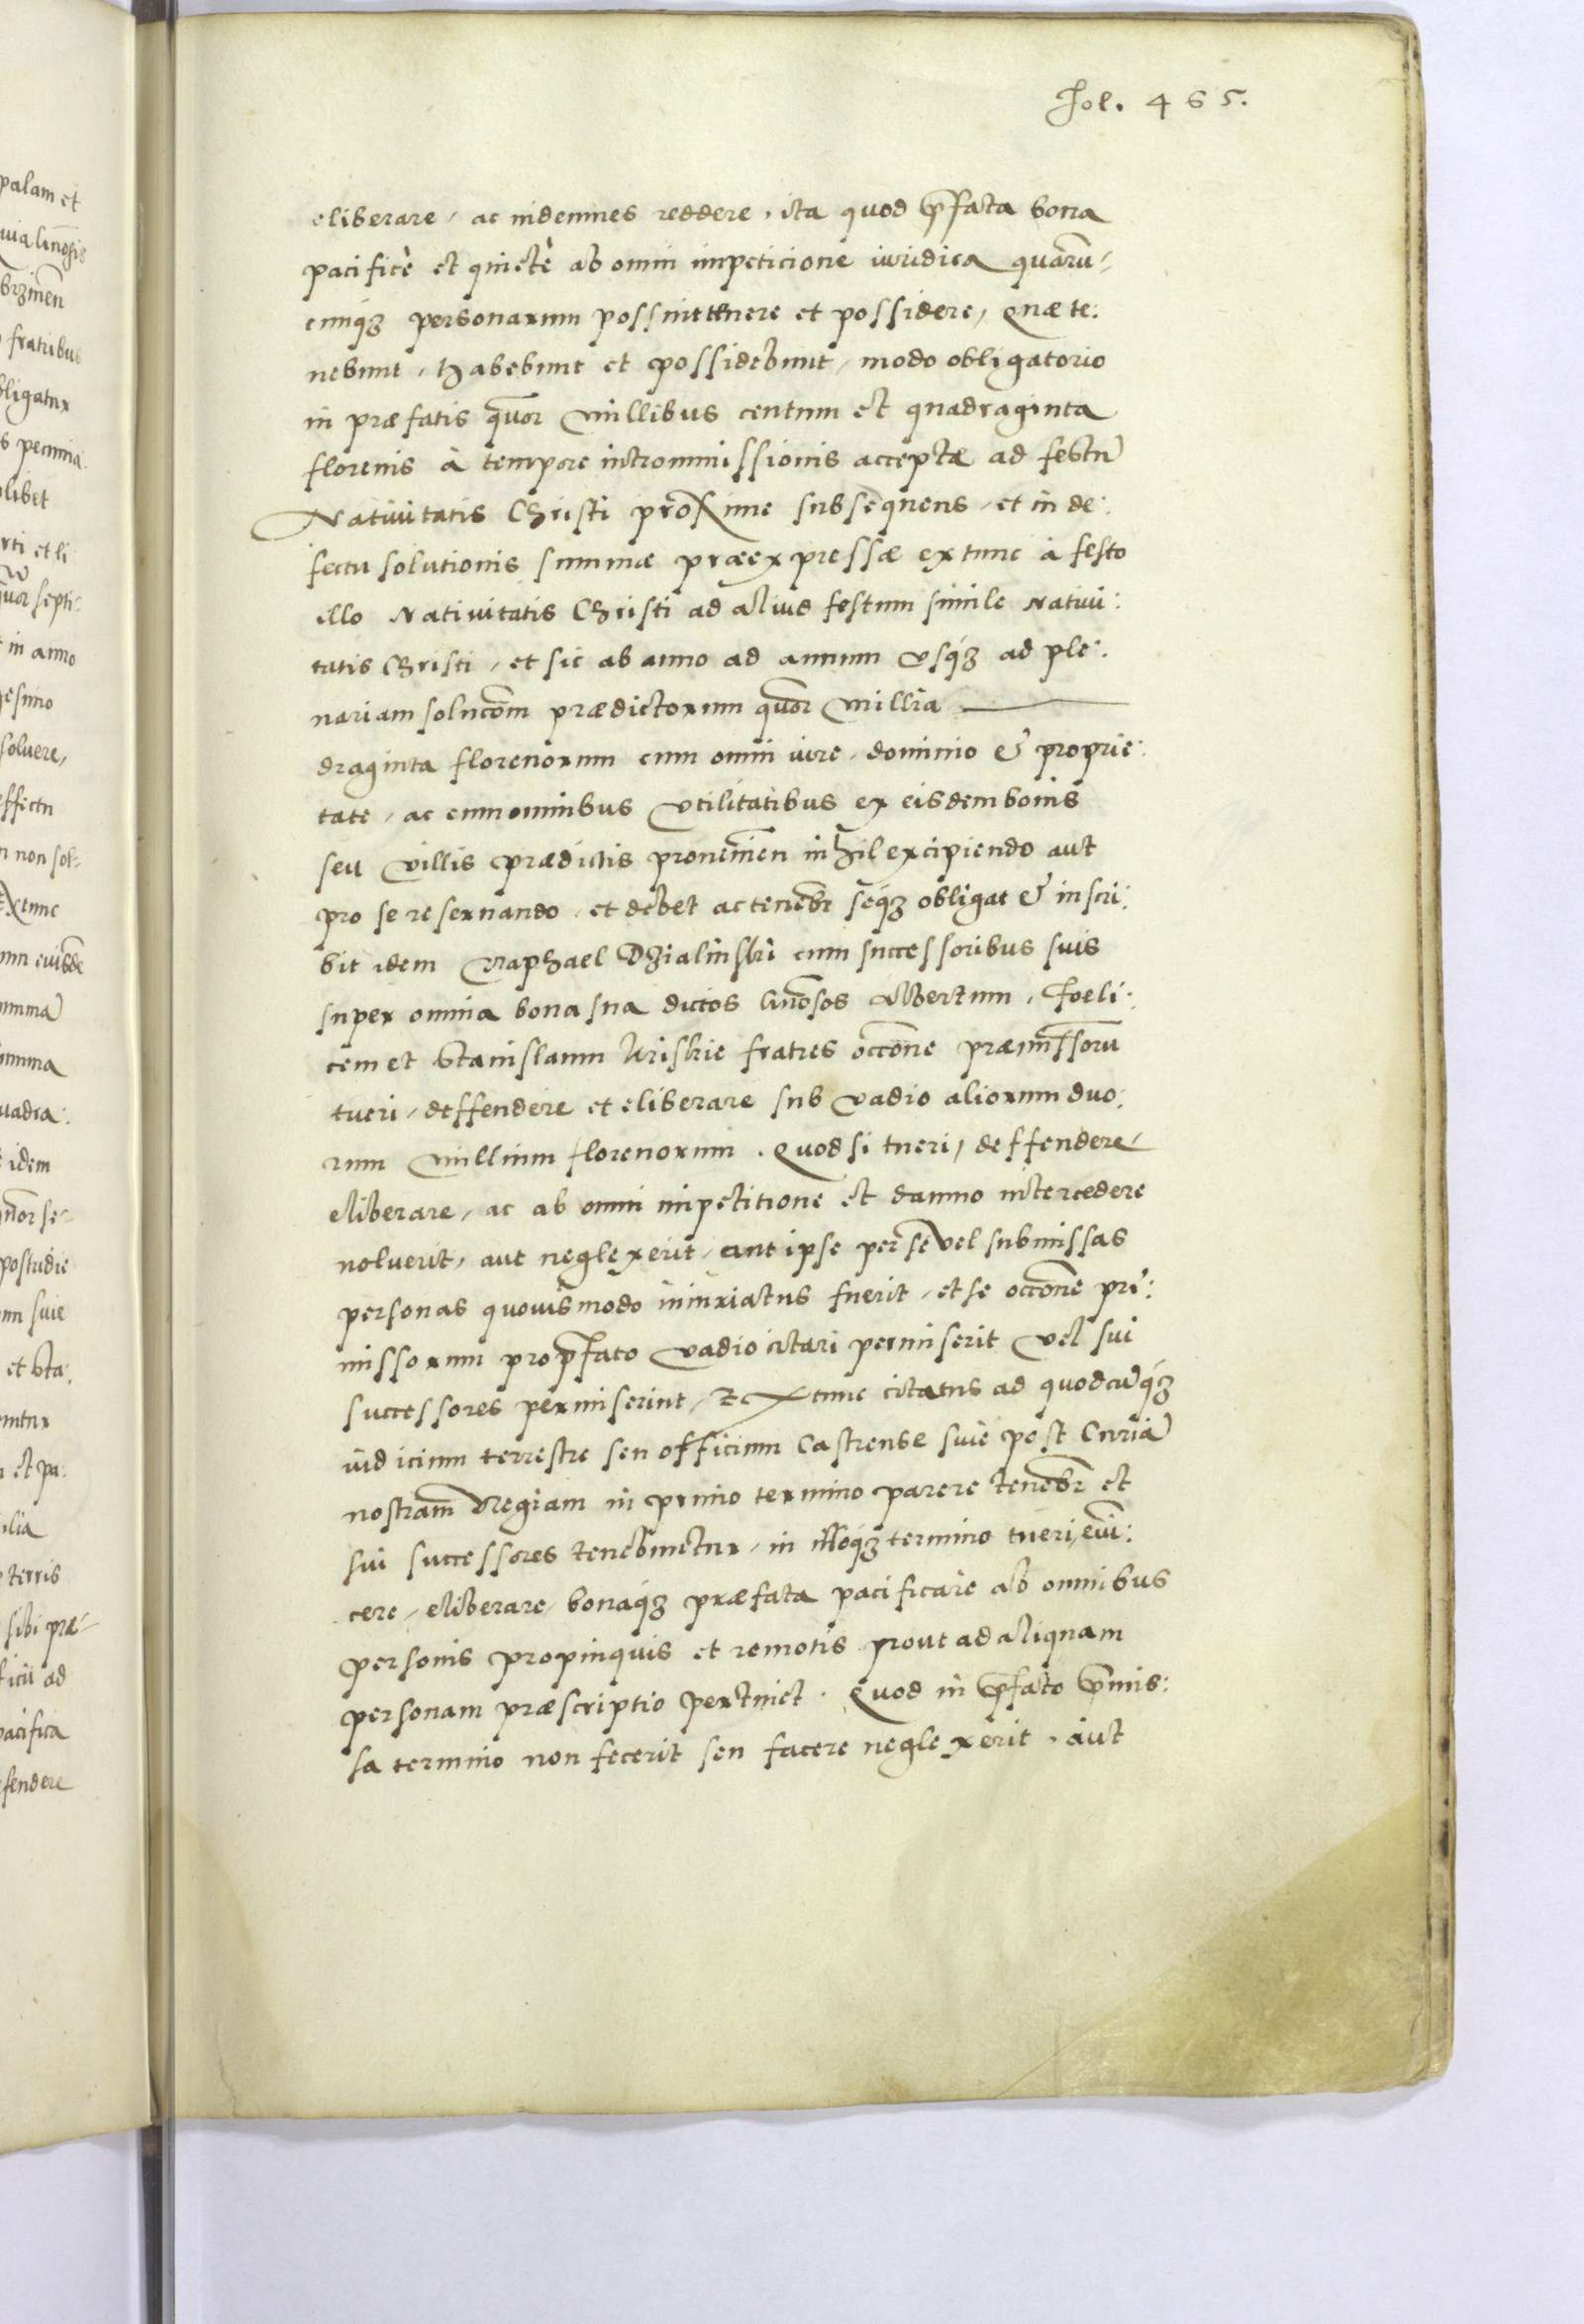 fol. 465.
eliberare, ac indemnes reddere, ita quod p̃fata bona
pacificè et quietè ab omni impeticione iuridica quarũ-
cunq3 personarum possint tenere et possidere, Quae te:
nebunt, habebunt et possidebunt, modo obligatorio
in praefatis quõr millibus centum et quadraginta
florenis à tempore intromissionis acceptae ad festũ
Nativitatis Christi proxime subsequens, et in de:
fectu solutionis summae praeexpressae extunc à festo
illo Nativitatis Christi ad aliud festum simile Nativi:
tatis Christi, et sic ab anno ad annum usq3 ad ple:
nariam solucõm praedictorum quõr millia
draginta florenorum cum omni iure, dominio & proprie:
tate, ac cum omnibus utilitatibus ex eisdem bonis
seu villis praedictis provenieñ nihil excipiendo aut
pro se reservando, et debet ac tenebr̃ seq3 obligat & inscri:
bit idem Raphael Dzialinski cum successoribus suis
super omnia bona sua dictos Gñosos Albertum, Foeli:
cem et Stanislaum Kriskie fratres occõne praemissorũ
tueri, deffendere et eliberare sub vadio aliorum duo:
rum millium florenorum. Quod si tueri, deffendere,
eliberare, ac ab omni impetitione et damno intercedere
noluerit, aut neglexerit, aut ipse per se vel submissas
personas quovismodo iniuriatus fuerit, et se occõne pre:
missorum pro p̃fato vadio citari permiserit vel sui
successores permiserint, Extunc citatus ad quodcũq3
iudicium terrestre seu officium Castrense sive post Curiã
nostram Regiam in primo termino parere tenebr̃ et
sui successores tenebuntur, in illoq3 termino tueri, evĩ:
cere, eliberare, bonaq3 praefata pacificare ab omnibus
personis propinquis et remotis prout ad aliquam
personam praescriptio pertinet. Quod in p̃fato p̃mis:
sa termino non fecerit seu facere neglexerit, aut